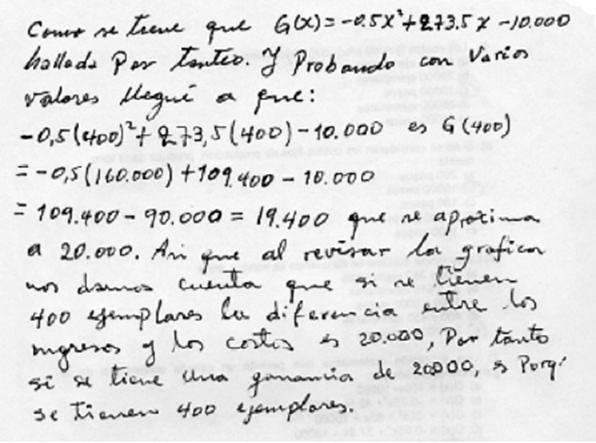 Como se tiene que G(x)=-0.5x²+273.5x-10.000
hallada Por tanteo. Y Probando con varios
valores llegué a que:
-0,5(400)²+273,5(400)-10.000 es G(400)
=-0,5(160.000)+109.400-10.000
= 109.400-90.000=19.400 que se aproxima
a 20.000. Asi que al revisar la grafica
nos damos cuenta que si se tienen
400 ejemplares la diferencia entre los
ingresos y los costos es 20.000, Por tanto
si se tiene una ganancia de 20000, es Porq'
se tienen 400 ejemplares.